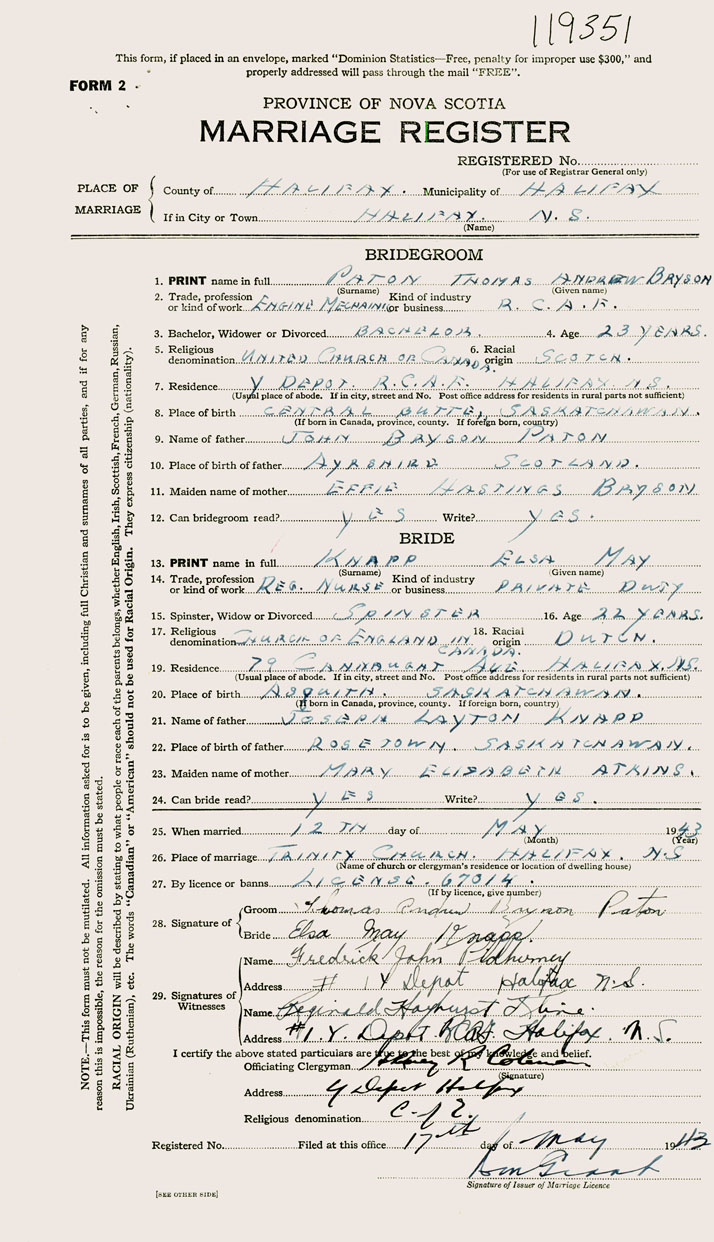 119351
This form, if placed in an envelope, marked “Dominion Statistics—Free, penalty for improper use $300,” and
properly addressed will pass through the mail “FREE”.
FORM 2
PROVINCE OF NOVA SCOTIA
MARRIAGE REGISTER
REGISTERED No.
(For use of Registrar General only)
PLACE OF MARRIAGE
County of HALIFAX. Municipality of HALIFAX
If in City or Town HALIFAX. N.S.
(Name)
BRIDEGROOM
1. PRINT name in full PATON THOMAS ANDREW BRYSON
(Surname) (Given name)
2. Trade, profession or kind of work ENGINE MECHANIC Kind of industry or business R.C.A.F.
3. Bachelor, Widower or Divorced BACHELOR. 4. Age 23 YEARS.
5. Religious denomination UNITED CHURCH OF CANADA. 6. Racial origin SCOTCH.
7. Residence Y DEPOT. R.C.A.F. HALIFAX. N.S.
(Usual place of abode. If in city, street and No. Post office address for residents in rural parts not sufficient)
8. Place of birth CENTRAL BUTTE, SASKATCHAWAN.
(If born in Canada, province, county. If foreign born, country)
9. Name of father JOHN BRYSON PATON
10. Place of birth of father AYRSHIRE SCOTLAND.
11. Maiden name of mother EFFIE HASTINGS BRYSON
12. Can bridegroom read? YES Write? YES.
BRIDE
13. PRINT name in full KNAPP ELSA MAY
(Surname) (Given name)
14. Trade, profession or kind of work REG. NURSE Kind of industry or business PRIVATE DUTY
15. Spinster, Widow or Divorced SPINSTER 16. Age 22 YEARS.
17. Religious denomination CHURCH OF ENGLAND IN CANADA. 18. Racial origin DUTCH.
19. Residence 79 CANNAUGHT AVE. HALIFAX. N.S.
(Usual place of abode. If in city, street and No. Post office address for residents in rural parts not sufficient)
20. Place of birth ASQUITH. SASKATCHAWAN.
(If born in Canada, province, county. If foreign born, country)
21. Name of father JOSEPH LAYTON KNAPP
22. Place of birth of father ROSETOWN. SASKATCHAWAN.
23. Maiden name of mother MARY ELIZABETH ATKINS.
24. Can bride read? YES Write? YES.
25. When married 12TH day of MAY 1943
(Month) (Year)
26. Place of marriage TRINITY CHURCH. HALIFAX. N.S
(Name of church or clergyman's residence or location of dwelling house)
27. By licence or banns LICENSE. 67014.
(If by licence, give number)
28. Signature of
Groom Thomas Andrew Bryson Paton
Bride Elsa May Knapp.
29. Signatures of Witnesses
Name Fredrick John
Address # 1 Y Depot Halifax N.S.
Name Reginald
Address #1. Y. Depot RCAF Halifax. N.S.
I certify the above stated particulars are true to the best of my knowledge and belief.
Officiating Clergyman R Coleman
(Signature)
Address Y Depot Halifax
Religious denomination C. of E.
Registered No. Filed at this office 17th day of May 1943
Grant
Signature of Issuer of Marriage Licence
[SEE OTHER SIDE]
NOTE.—This form must not be mutilated. All information asked for is to be given, including full Christian and surnames of all parties, and if for any
reason this is impossible, the reason for the omission must be stated.
RACIAL ORIGIN will be described by stating to what people or race each of the parents belongs, whether English, Irish, Scottish, French, German, Russian,
Ukrainian (Ruthenian), etc. The words “Canadian” or “American” should not be used for Racial Origin. They express citizenship (nationality).